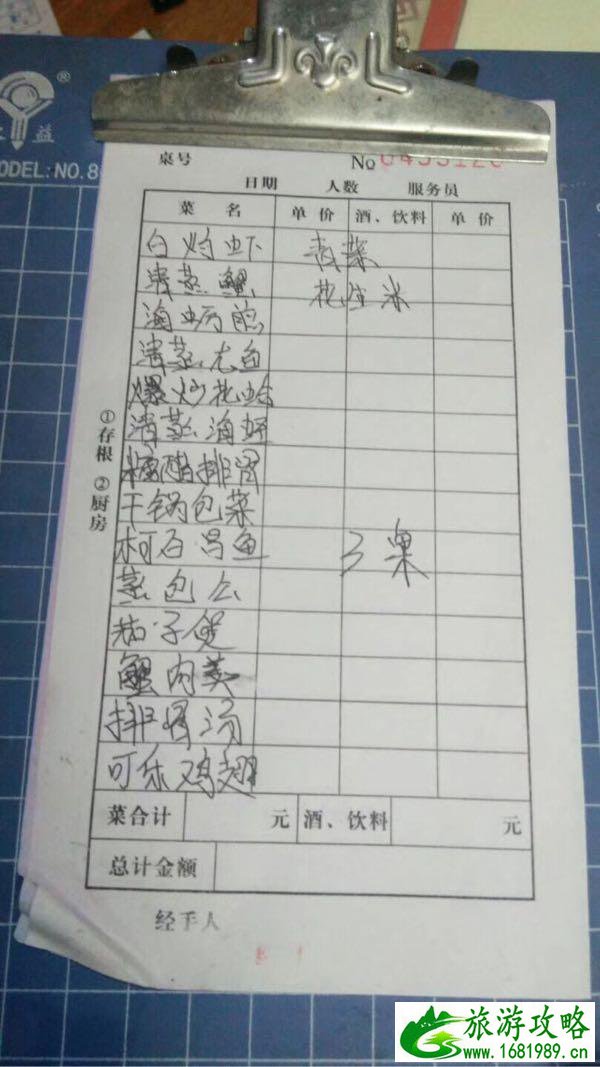 ®
益
MODEL:NO.8
桌号 No 0455120
日期 人数 服务员
菜 名 单 价 酒、饮料 单 价
白灼虾 青菜
清蒸蟹 花生米
海蛎煎
清蒸 鱼
爆炒花蛤
清蒸海虾
糖醋排骨
干锅包菜
石 鱼 3桌
蒸包公
茄子煲
蟹肉羹
排骨汤
可乐鸡翅
①存根 ②厨房
菜合计 元 酒、饮料 元
总计金额
经手人
旅游攻略
www.1681989.cn